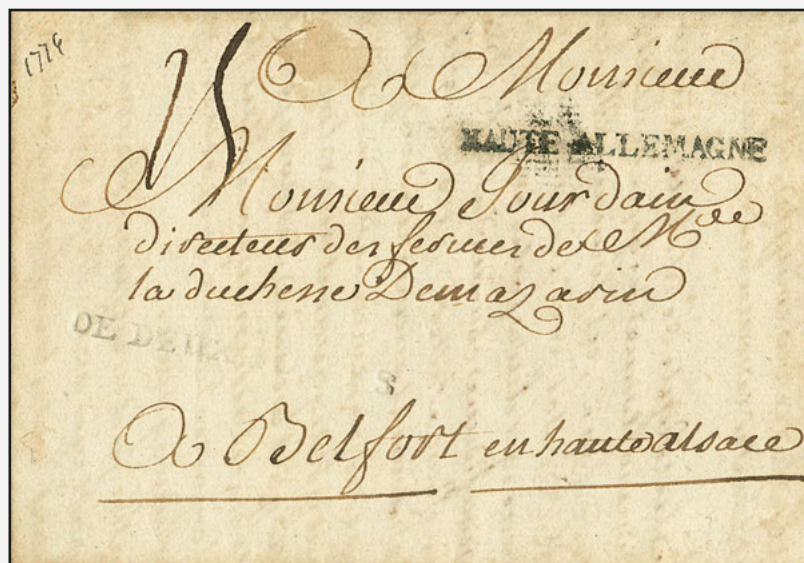 1774
A Monsieur
HAUTE ALLEMAGNE
Monsieur Jourdain
directeur des fermes de Mde
la duchesse Demazarin
DE DEUX
A Belfort en haute alsace